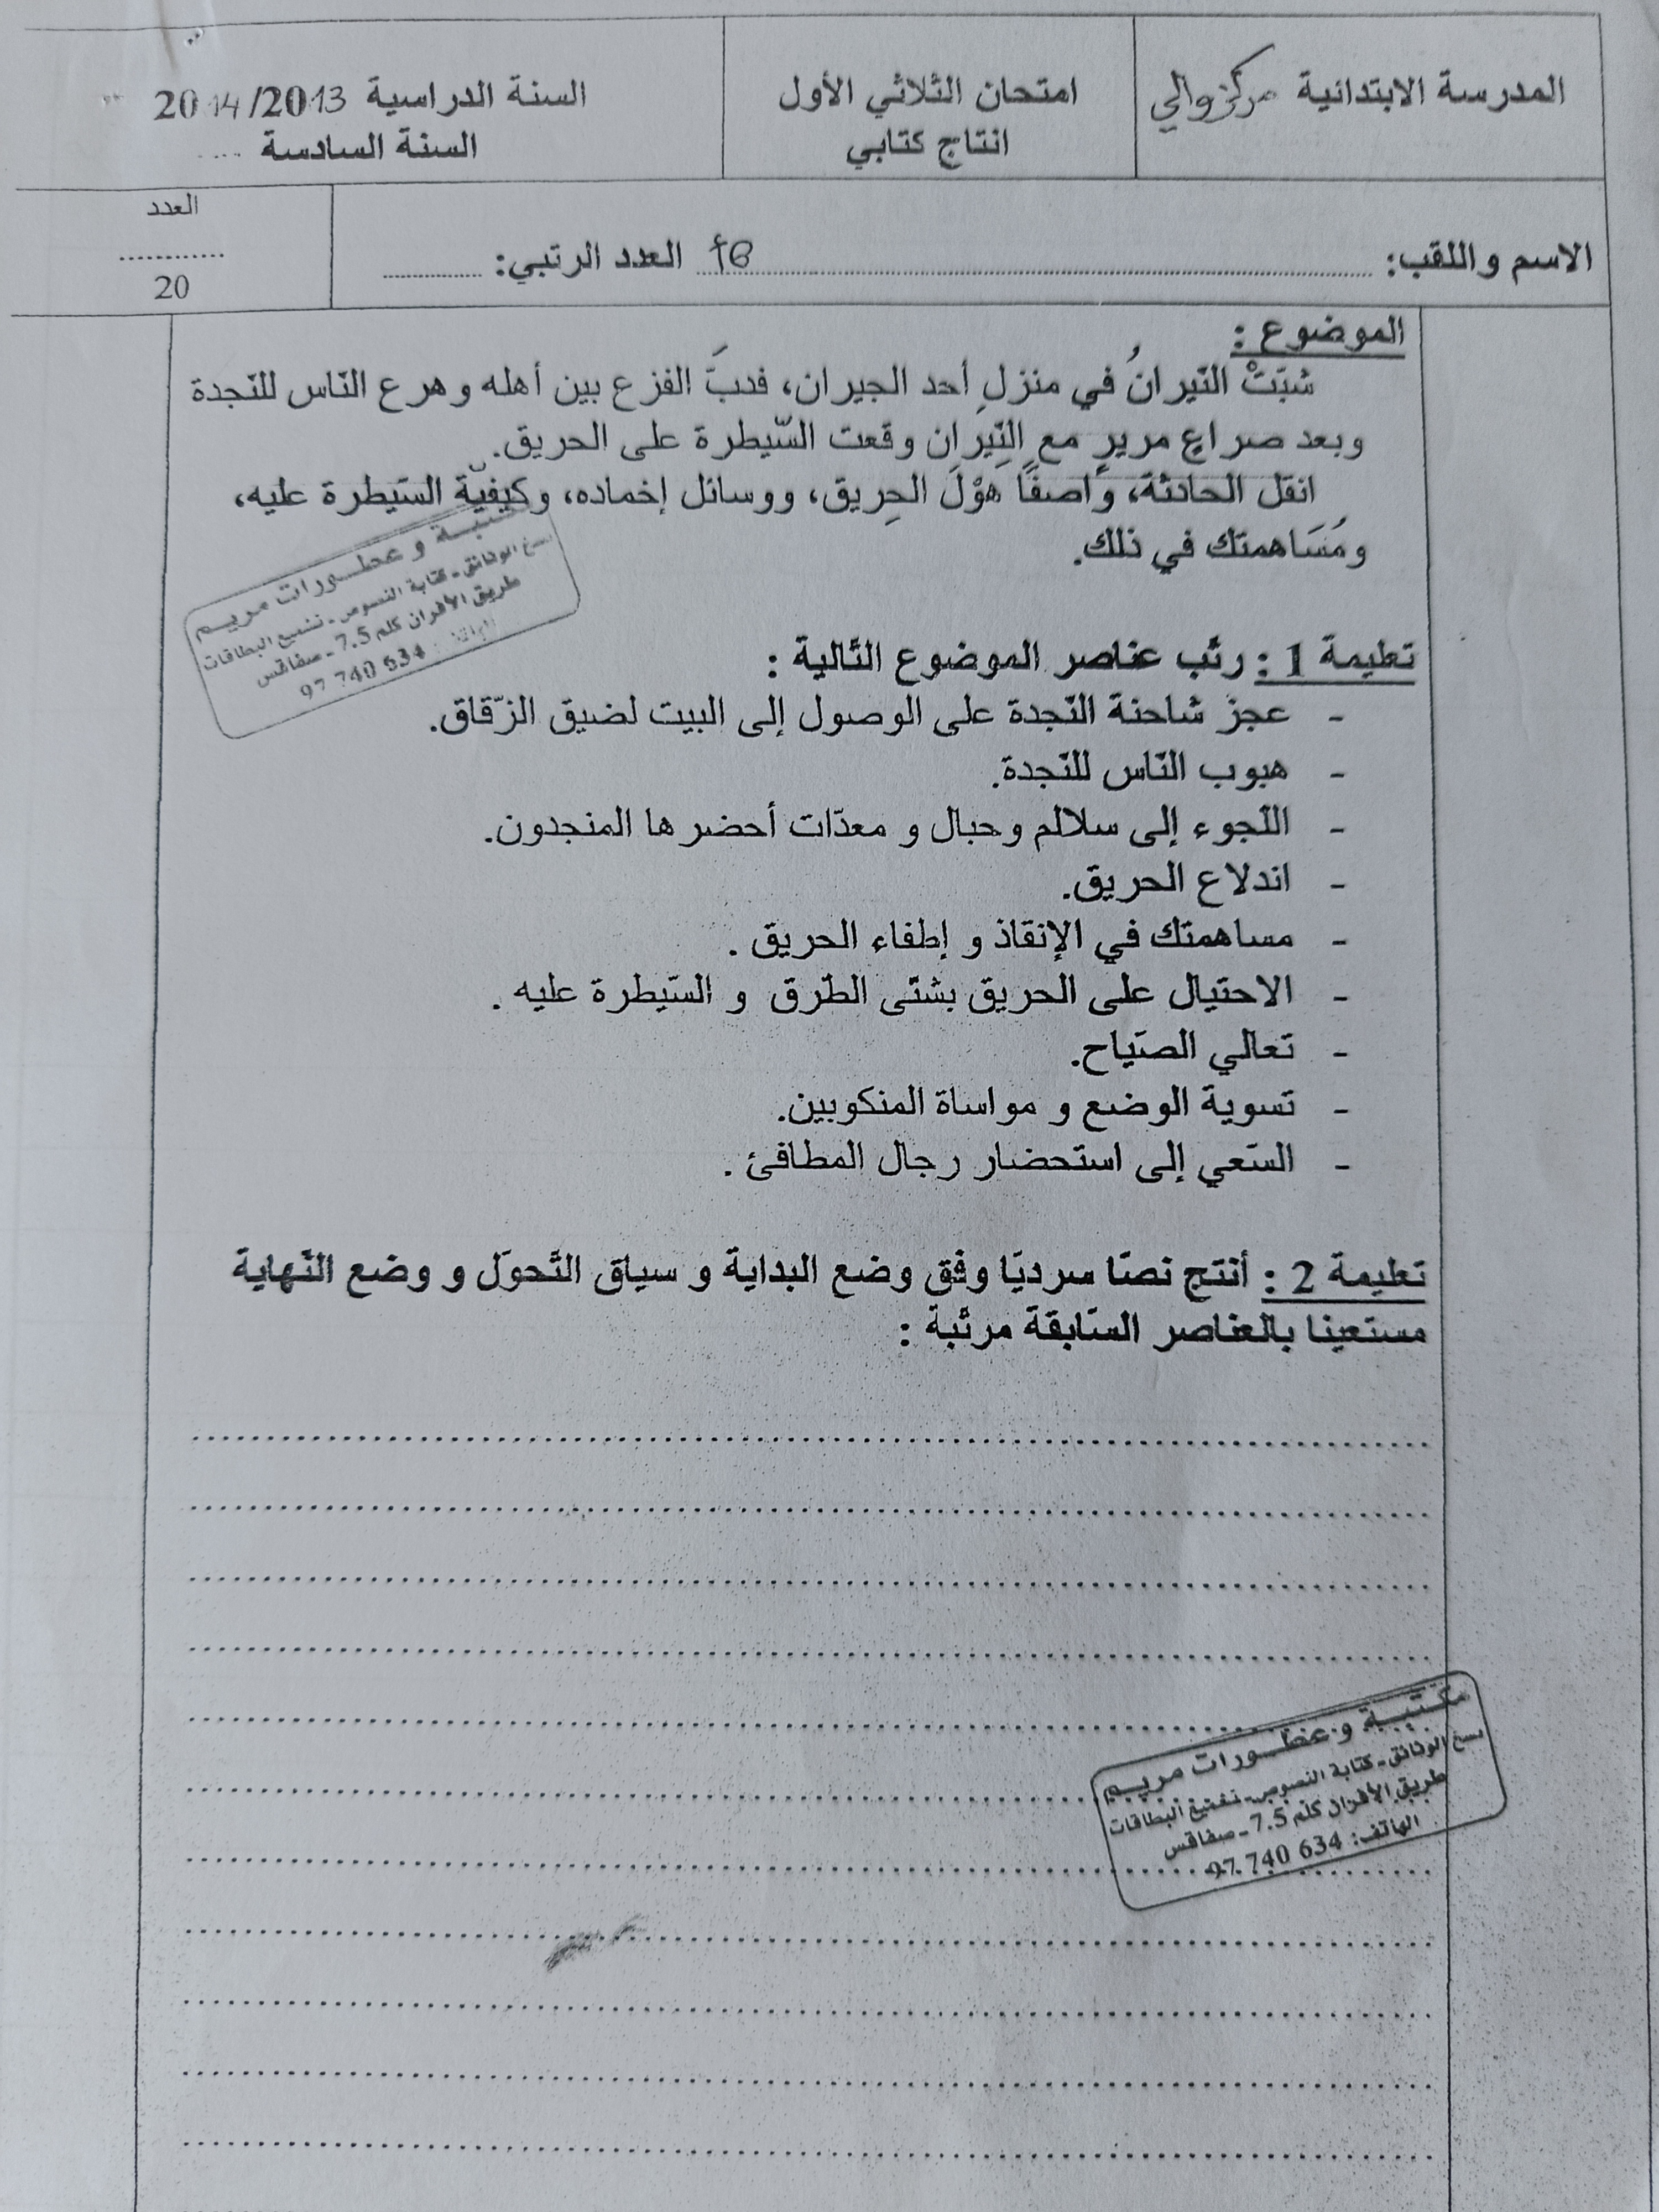 المدرسة الابتدائية مركز والي
امتحان الثلاثي الأول
انتاج كتابي
السنة الدراسية 2014/2013
السنة السادسة ....
الاسم واللقب: ........ العدد الرتبي: ........
العدد
............
20
الموضوع :
شبّتْ النّيرانُ في منزلِ أحد الجيران، فدبَّ الفزع بين أهله وهرع النّاس للنّجدة
وبعد صراعٍ مريرٍ مع النِّيرَان وقعت السّيطرة على الحريق.
انقل الحادثة، وَاصفًا هوْلَ الحِريق، ووسائل إخماده، وكيفيّة السّيطرة عليه،
ومُسَاهمتك في ذلك.
مكتبـة و عطـورات مريـم
نسخ الوثائق - كتابة النصوص - تشبيع البطاقات
طريق الأفران كلم 7.5 - صفاقس
الهاتف: 634 740 97
تعليمة 1 : رتّب عناصر الموضوع التّالية :
- عجز شاحنة النّجدة على الوصول إلى البيت لضيق الزّقاق.
- هبوب النّاس للنّجدة.
- اللّجوء إلى سلالم وحبال و معدّات أحضرها المنجدون.
- اندلاع الحريق.
- مساهمتك في الإنقاذ و إطفاء الحريق .
- الاحتيال على الحريق بشتّى الطّرق و السّيطرة عليه .
- تعالي الصّياح.
- تسوية الوضع و مواساة المنكوبين.
- السّعي إلى استحضار رجال المطافئ .
تعليمة 2 : أنتج نصّا سرديّا وفق وضع البداية و سياق التّحوّل و وضع النّهاية
مستعينا بالعناصر السّابقة مرتّبة :
مكتبـة و عطـورات مريـم
نسخ الوثائق - كتابة النصوص - تشبيع البطاقات
طريق الأفران كلم 7.5 - صفاقس
الهاتف: 634 740 97